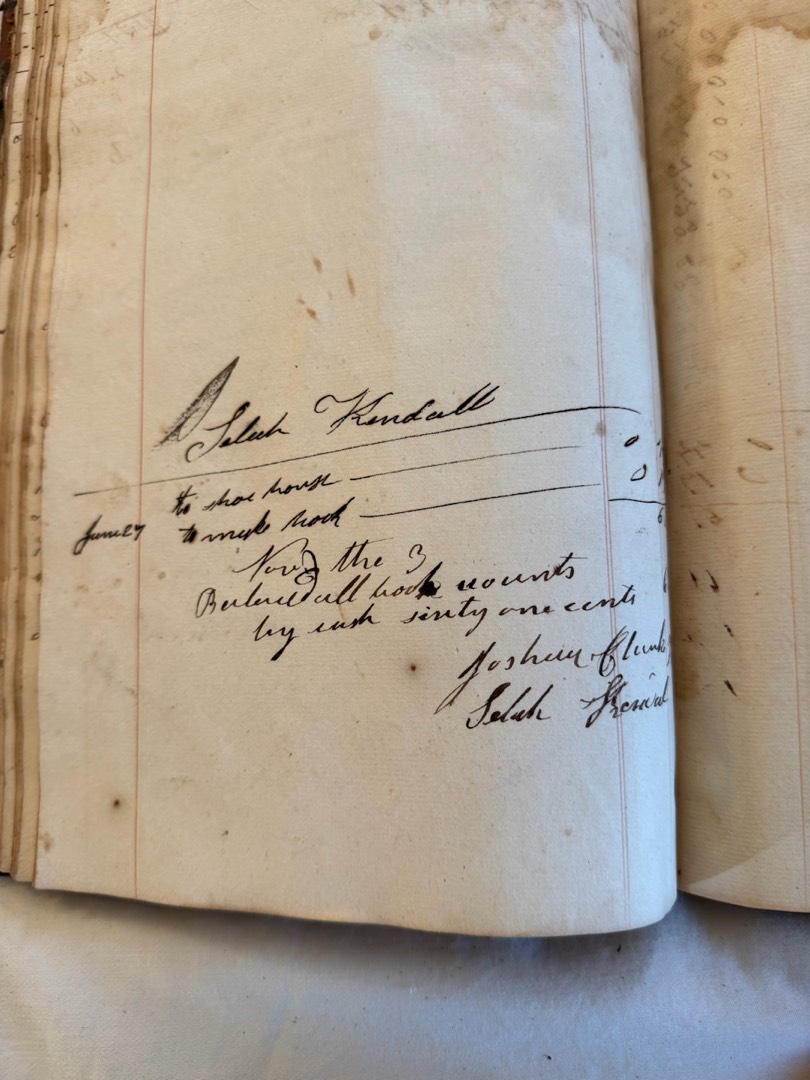 Selah Kendall
to shoe horse 0
June 27 to make hook 0
6
Nov the 3
all book acounts
by cash sixty one cents
Joshua Clark
Selah Kendal